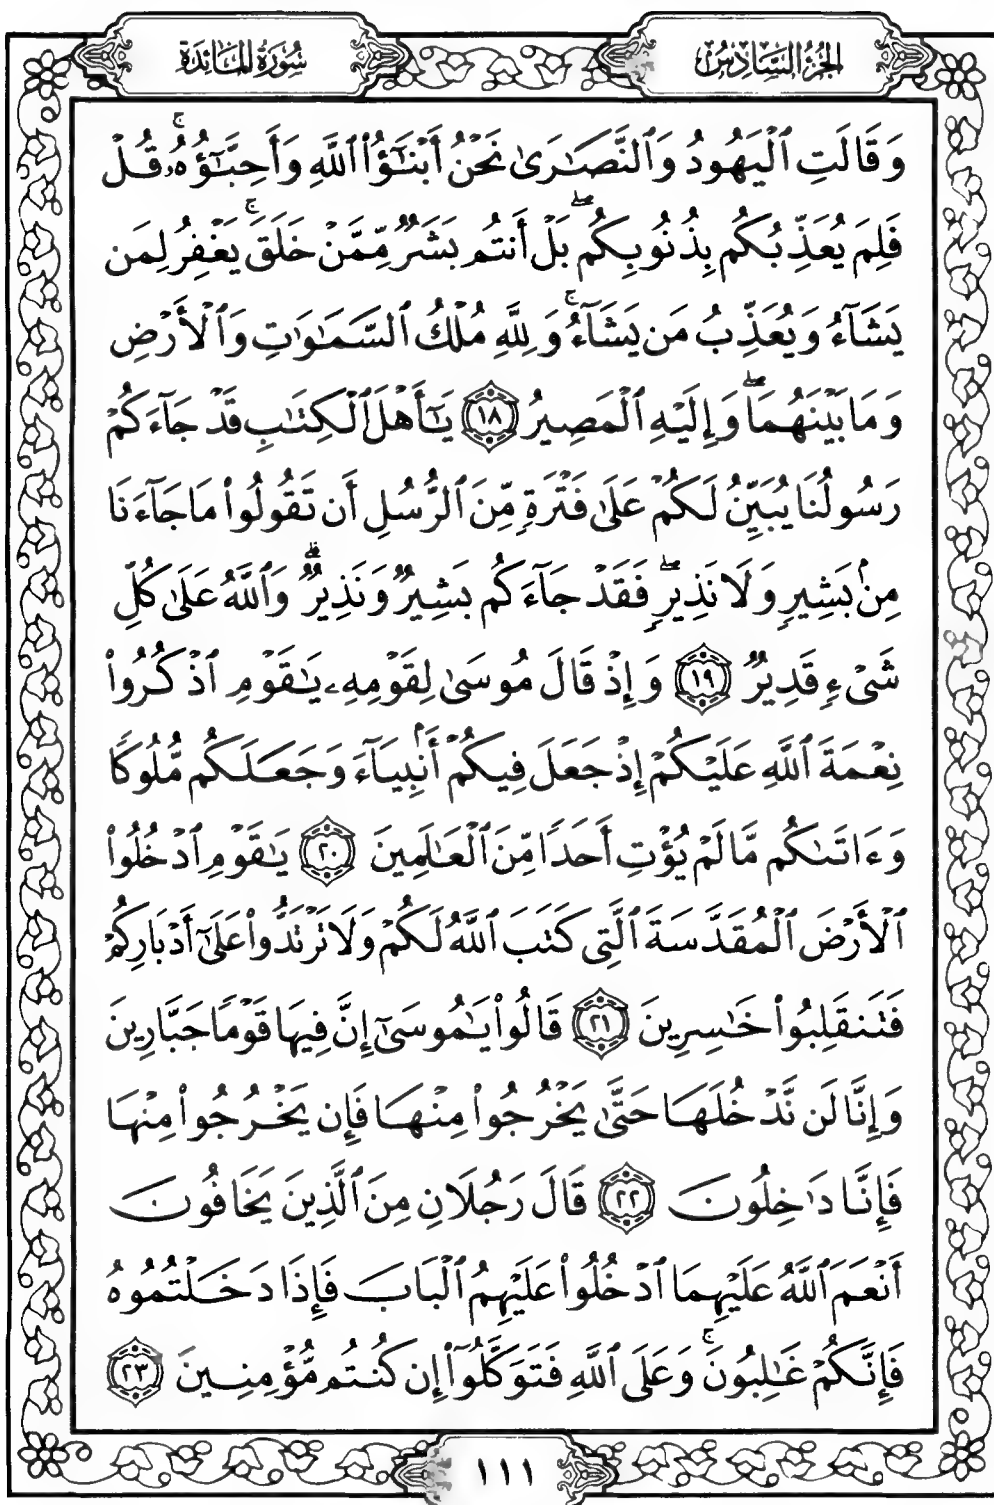 الجزء السادس
سورة المائدة
وَقَالَتِ ٱلْيَهُودُ وَٱلنَّصَـٰرَىٰ نَحْنُ أَبْنَـٰٓؤُا۟ ٱللَّهِ وَأَحِبَّـٰٓؤُهُۥۚ قُلْ
فَلِمَ يُعَذِّبُكُم بِذُنُوبِكُمۖ بَلْ أَنتُم بَشَرٌ مِّمَّنْ خَلَقَۚ يَغْفِرُ لِمَن
يَشَآءُ وَيُعَذِّبُ مَن يَشَآءُۚ وَلِلَّهِ مُلْكُ ٱلسَّمَـٰوَٰتِ وَٱلْأَرْضِ
وَمَا بَيْنَهُمَاۖ وَإِلَيْهِ ٱلْمَصِيرُ ١٨ يَـٰٓأَهْلَ ٱلْكِتَـٰبِ قَدْ جَآءَكُمْ
رَسُولُنَا يُبَيِّنُ لَكُمْ عَلَىٰ فَتْرَةٍ مِّنَ ٱلرُّسُلِ أَن تَقُولُوا۟ مَا جَآءَنَا
مِنۢ بَشِيرٍ وَلَا نَذِيرٍۖ فَقَدْ جَآءَكُم بَشِيرٌ وَنَذِيرٌۗ وَٱللَّهُ عَلَىٰ كُلِّ
شَىْءٍ قَدِيرٌ ١٩ وَإِذْ قَالَ مُوسَىٰ لِقَوْمِهِۦ يَـٰقَوْمِ ٱذْكُرُوا۟
نِعْمَةَ ٱللَّهِ عَلَيْكُمْ إِذْ جَعَلَ فِيكُمْ أَنۢبِيَآءَ وَجَعَلَكُم مُّلُوكًا
وَءَاتَىٰكُم مَّا لَمْ يُؤْتِ أَحَدًا مِّنَ ٱلْعَـٰلَمِينَ ٢٠ يَـٰقَوْمِ ٱدْخُلُوا۟
ٱلْأَرْضَ ٱلْمُقَدَّسَةَ ٱلَّتِى كَتَبَ ٱللَّهُ لَكُمْ وَلَا تَرْتَدُّوا۟ عَلَىٰٓ أَدْبَارِكُمْ
فَتَنقَلِبُوا۟ خَـٰسِرِينَ ٢١ قَالُوا۟ يَـٰمُوسَىٰٓ إِنَّ فِيهَا قَوْمًا جَبَّارِينَ
وَإِنَّا لَن نَّدْخُلَهَا حَتَّىٰ يَخْرُجُوا۟ مِنْهَا فَإِن يَخْرُجُوا۟ مِنْهَا
فَإِنَّا دَٰخِلُونَ ٢٢ قَالَ رَجُلَانِ مِنَ ٱلَّذِينَ يَخَافُونَ
أَنْعَمَ ٱللَّهُ عَلَيْهِمَا ٱدْخُلُوا۟ عَلَيْهِمُ ٱلْبَابَ فَإِذَا دَخَلْتُمُوهُ
فَإِنَّكُمْ غَـٰلِبُونَۚ وَعَلَى ٱللَّهِ فَتَوَكَّلُوٓا۟ إِن كُنتُم مُّؤْمِنِينَ ٢٣
١١١